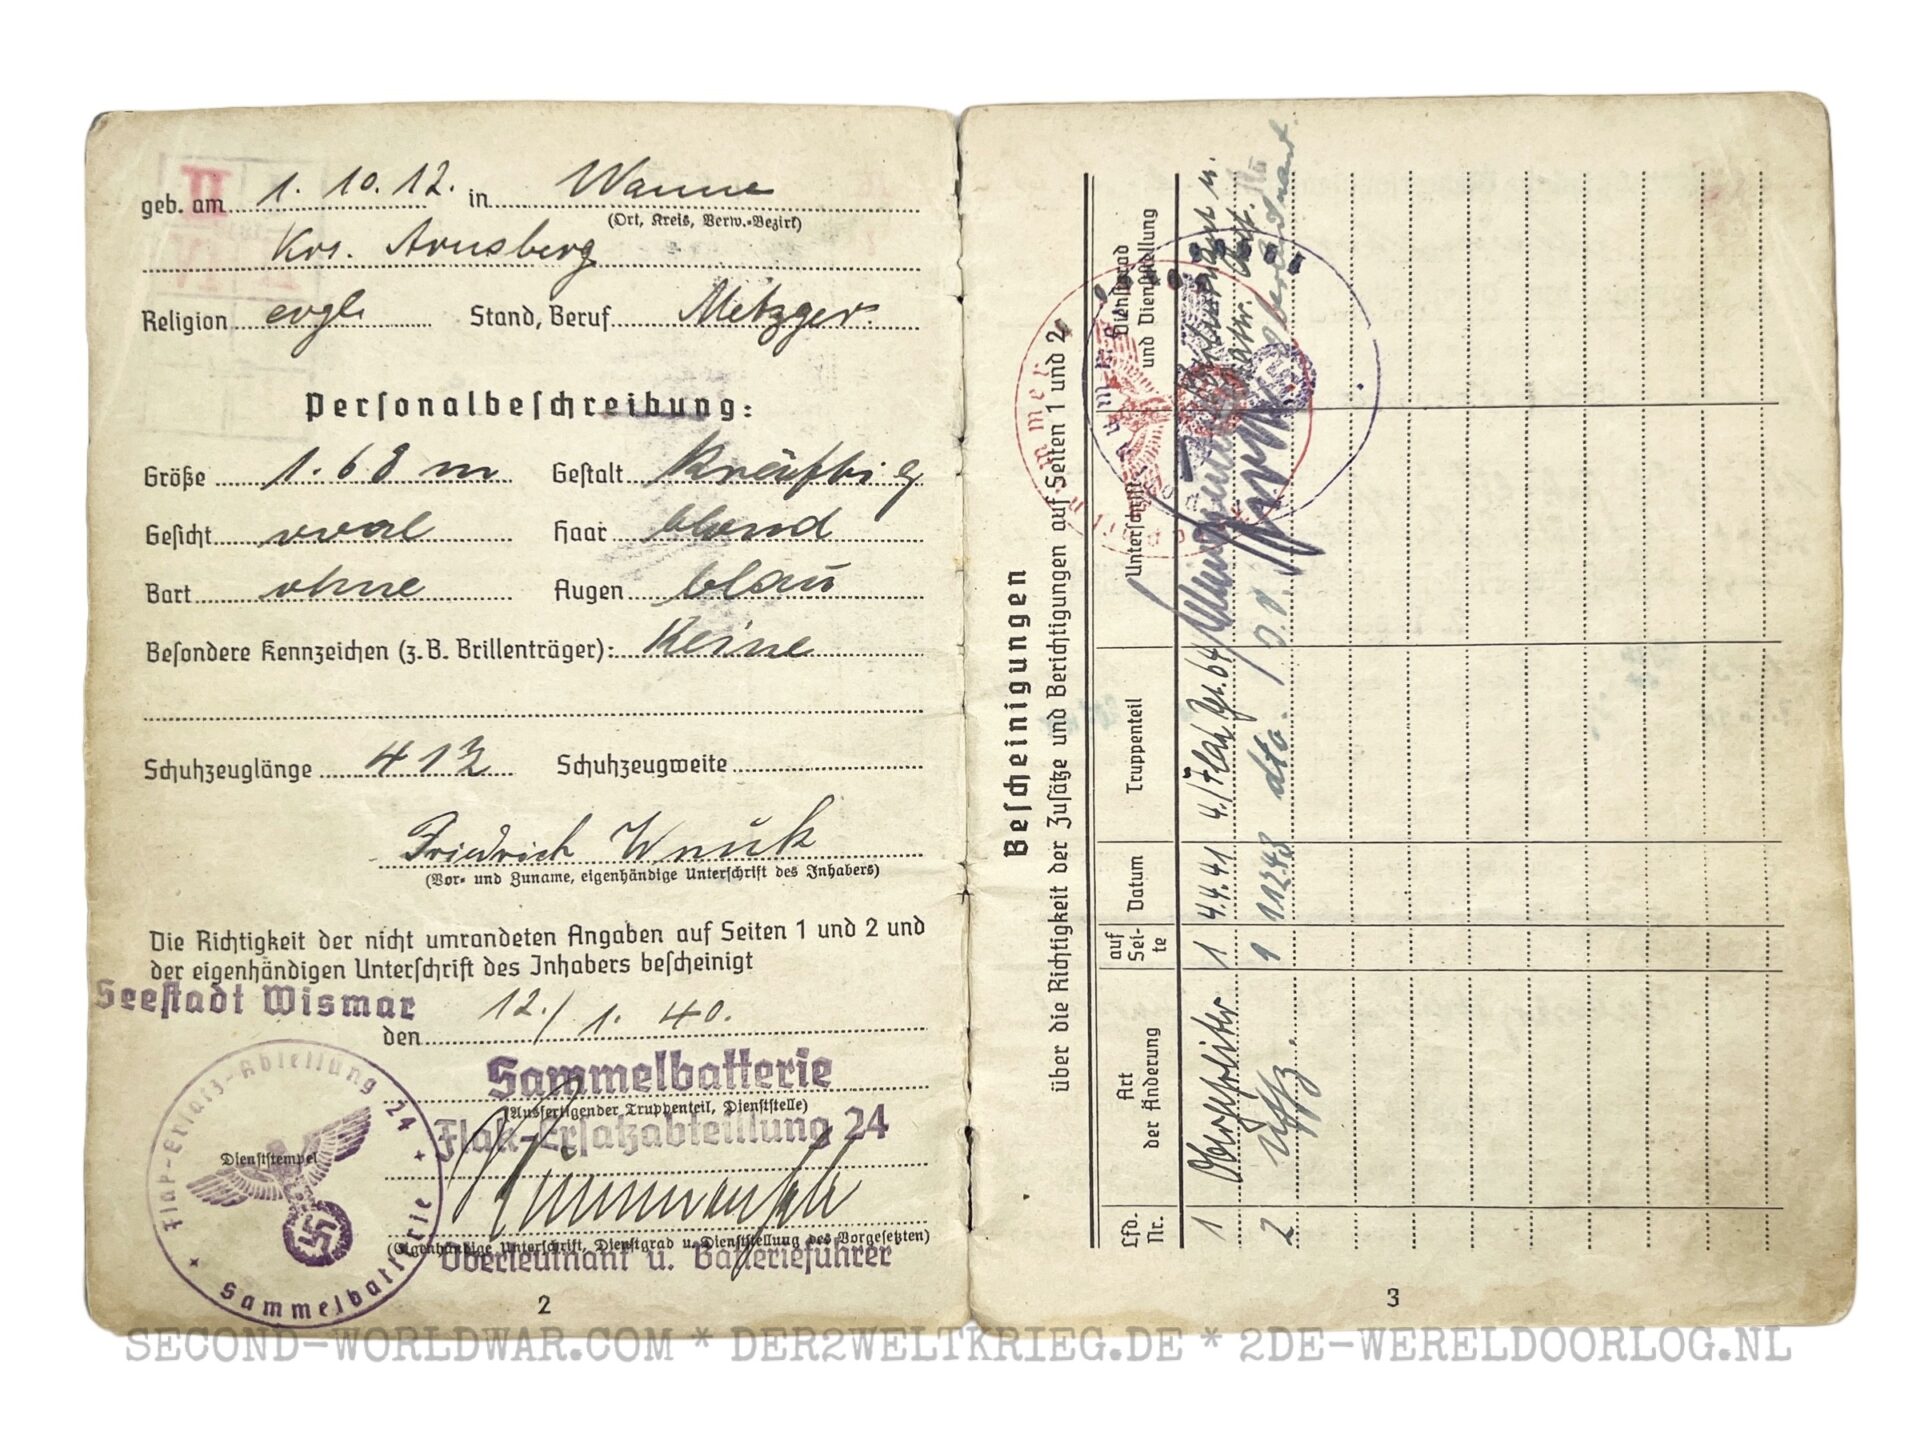 geb. am 1. 10. 12. in Wanne
(Ort, Kreis, Verw.-Bezirk)
Krs. Arnsberg
Religion evgl. Stand, Beruf Metzger.
Personalbeschreibung:
Größe 1.68 m Gestalt kräftig
Gesicht oval Haar blond
Bart ohne Augen blau
Besondere Kennzeichen (z. B. Brillenträger): Keine
Schuhzeuglänge Schuhzeugweite
Friedrich Wnuk
(Vor- und Zuname, eigenhändige Unterschrift des Inhabers)
Die Richtigkeit der nicht umrandeten Angaben auf Seiten 1 und 2 und
der eigenhändigen Unterschrift des Inhabers bescheinigt
Seestadt Wismar
den 12./1. 40.
Sammelbatterie
(Ausfertigender Truppenteil, Dienststelle)
Flak-Ersatzabteilung 24
Dienststempel
Flak-Ersatz-Abteilung 24
Sammelbatterie
(Eigenhändige Unterschrift, Dienstgrad u. Dienststellung des Vorgesetzten)
Oberleutnant u. Batterieführer
2
Bescheinigungen
über die Richtigkeit der Zusätze und Berichtigungen auf Seiten 1 und 2
Lfd. Nr. Art der Änderung auf Seite Datum Truppenteil Unterschrift Dienstgrad und Dienststellung
1 Obergefreiter 1 4.4.41 4./Flak
2 Uffz. 1 1.12.43 dto.
3
SECOND-WORLDWAR.COM * DER2WELTKRIEG.DE * 2DE-WERELDOORLOG.NL